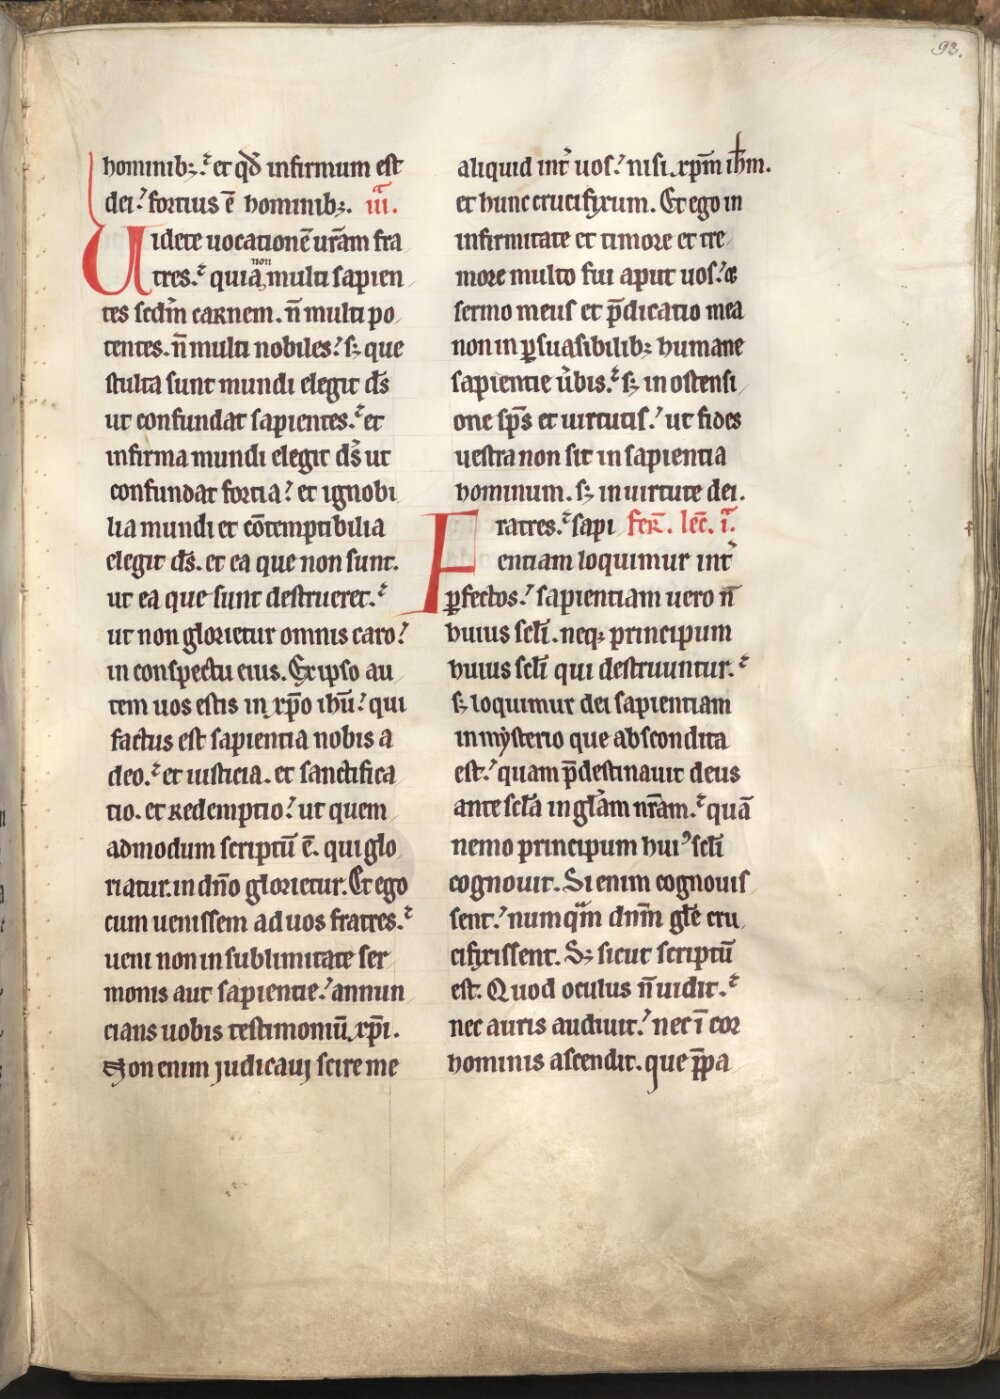 93.
hominibꝫ. et qđ infirmum est
dei. fortius ē hominibꝫ. iii.
Uidete uocationē urām fra
tres. quia non multi sapien
tes sedm̄ carnem. n̄ multi po
tentes. n̄ multi nobiles. sꝫ que
stulta sunt mundi elegit ds̄
ut confundat sapientes. et
infirma mundi elegit ds̄ ut
confundat fortia. et ignobi
lia mundi et cōtemptibilia
elegit ds̄. et ea que non sunt.
ut ea que sunt destrueret.
ut non glorietur omnis caro.
in conspectu eius. Ex ipso au
tem uos estis in xp̄o ihū. qui
factus est sapientia nobis a
deo. et iusticia. et sanctifica
tio. et redemptio. ut quem
admodum scriptū ē. qui glo
riatur. in dn̄o glorietur. Et ego
cum uenissem ad uos fratres.
ueni non in sublimitate ser
monis aut sapientie. annun
cians uobis testimoniū xp̄i.
Non enim judicaui scire me
aliquid int̄ uos. nisi xp̄m ihm̄.
et hunc crucifixum. Et ego in
infirmitate et timore et tre
more multo fui aput uos. et
sermo meus et p̄dicatio mea
non in ꝑsuasibilibꝫ humane
sapientie ūbis. sꝫ in ostensi
one sp̄s et uirtutis. ut fides
uestra non sit in sapientia
hominum. sꝫ in uirtute dei.
Fratres. sapi fer̄. lec̄. i.
entiam loquimur int̄
ꝑfectos. sapientiam uero n̄
huius scl̄i. neqꝫ principum
huius scl̄i qui destruuntur.
sꝫ loquimur dei sapientiam
in mysterio que abscondita
est. quam p̄destinauit deus
ante scl̄a in gl̄am nr̄am. quā
nemo principum huiꝰ scl̄i
cognouit. Si enim cognouis
sent. numqᵃm dnm̄ gl̄e cru
cifixissent. Sꝫ sicut scriptū
est. Quod oculus n̄ uidit.
nec auris audiuit. nec ī cor
hominis ascendit. que p̄pa